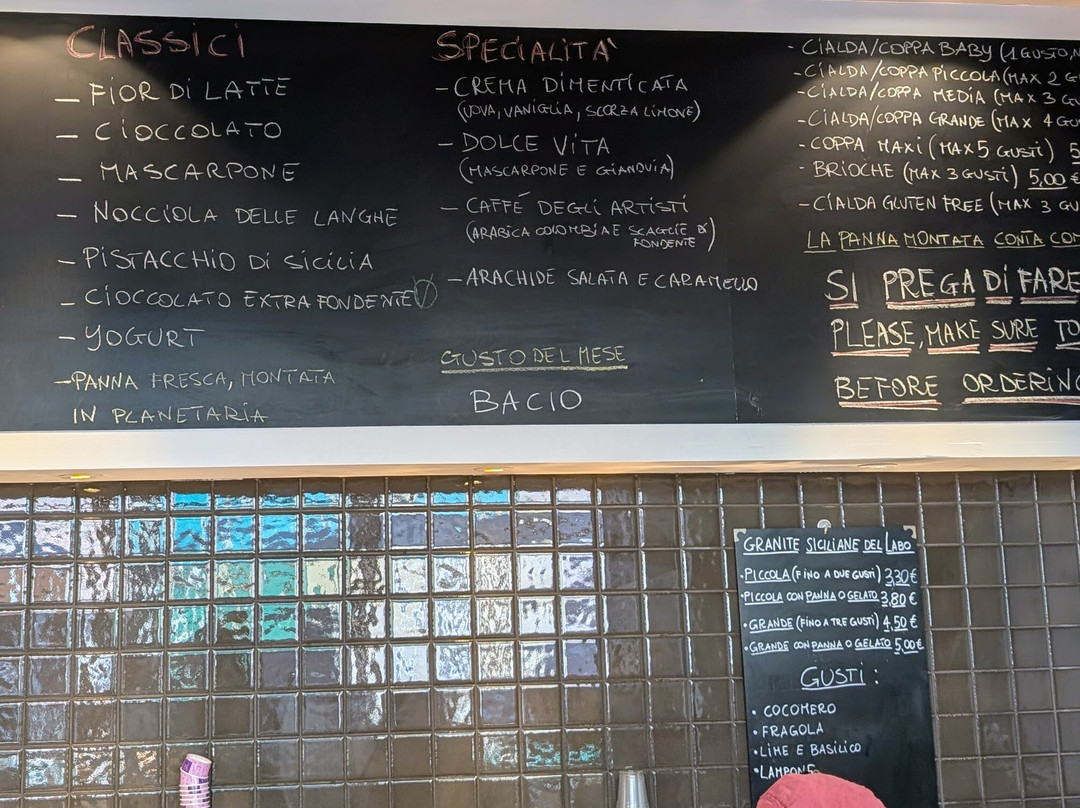 CLASSICI
– FIOR DI LATTE
– CIOCCOLATO
– MASCARPONE
– NOCCIOLA DELLE LANGHE
– PISTACCHIO DI SICILIA
– CIOCCOLATO EXTRA FONDENTE V
– YOGURT
– PANNA FRESCA, MONTATA
IN PLANETARIA
SPECIALITA'
– CREMA DIMENTICATA
(UOVA, VANIGLIA, SCORZA LIMONE)
– DOLCE VITA
(MASCARPONE E GIANDUIA)
– CAFFÉ DEGLI ARTISTI
(ARABICA COLOMBIA E SCAGLIE DI
FONDENTE)
– ARACHIDE SALATA E CARAMELLO
GUSTO DEL MESE
BACIO
- CIALDA/COPPA BABY (1 GUSTO,
- CIALDA/COPPA PICCOLA (MAX 2
- CIALDA/COPPA MEDIA (MAX 3
- CIALDA/COPPA GRANDE (MAX 4
- COPPA MAXI (MAX 5 GUSTI) 5
- BRIOCHE (MAX 3 GUSTI) 5,00 €
- CIALDA GLUTEN FREE (MAX 3
LA PANNA MONTATA CONTA
SI PREGA DI FARE
PLEASE, MAKE SURE
BEFORE ORDERING
GRANITE SICILIANE DEL LABO
• PICCOLA (FINO A DUE GUSTI) 3,30 €
• PICCOLA CON PANNA O GELATO 3,80 €
• GRANDE (FINO A TRE GUSTI) 4,50 €
• GRANDE CON PANNA O GELATO 5,00 €
GUSTI:
• COCOMERO
• FRAGOLA
• LIME E BASILICO
• LAMPONE